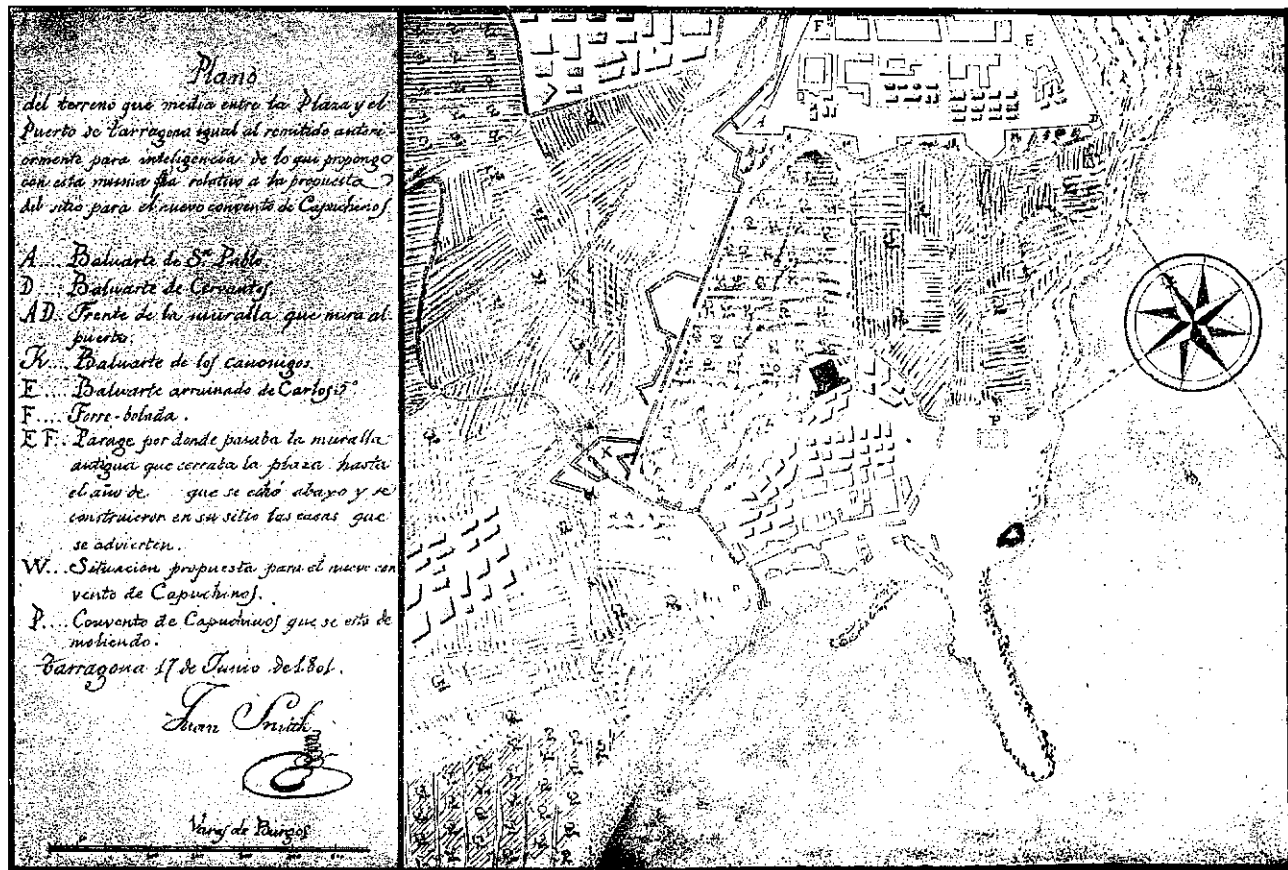 Plano
del terreno que media entre la Plaza y el
Puerto de Tarragona igual al remitido anteri-
ormente para inteligencia de lo que propongo
con esta misma fha relativo a la propuesta
del sitio para el nuevo convento de Capuchinos
A.... Baluarte de Sn. Pablo.
D.... Baluarte de Cervantes.
AD.. Frente de la muralla que mira al
puerto.
K.... Baluarte de los canonigos.
E.... Baluarte arruinado de Carlos 5º
F.... Torre-bolada.
EF.. Parage por donde pasaba la muralla
antigua que cerraba la plaza hasta
el año de que se echó abajo y se
construieron en su sitio las casas que
se advierten.
W... Situacion propuesta para el nuevo con
vento de Capuchinos.
P.... Convento de Capuchinos que se está de
moliendo.
Tarragona 17 de Junio de 1801.
Juan Smith
Varas de Burgos
F
E
A
D
K
P